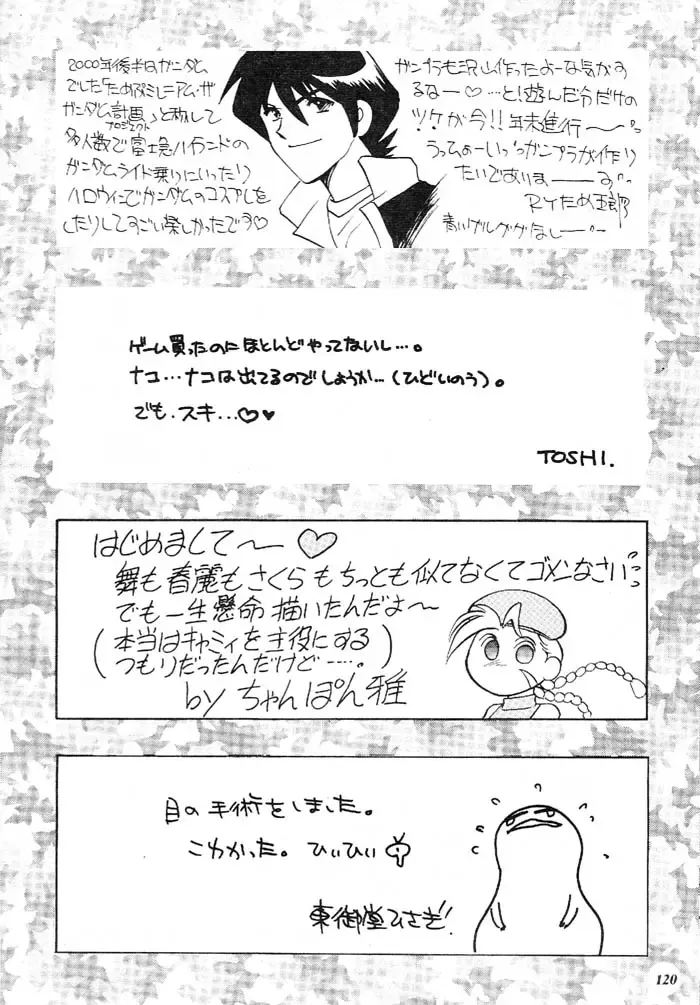 2000年後半はガンダム
でした「ため改ミレニアム・ザ
ガンダム計画」と称して
プロジェクト
多人数で富士急ハイランドの
ガンダムライド乗りにいったり
ハロウィンでガンダムのコスプレを
したりしてすごい楽しかったです♡
ガンプラも沢山作ったよーな気がす
るなー♡…と!遊んだ分だけの
ツケが今!!年末進行〜
うってゃーいっガンプラが作り
たいであいまーーす
RYため五郎
青いゲルググなしーー
ゲーム買ったのにほとんどやってないし…。
ナコ…ナコは出てるのでしょうか…(ひどいのう)。
でも、スキ…♡♥
TOSHI.
はじめまして〜♡
舞も春麗もさくらもちっとも似てなくてゴメンなさい
でも一生懸命描いたんだよ〜
(本当はキャミィを主役にする
つもりだったんだけど……。)
by ちゃんぽん雅
目の手術をしました。
こわかった。ひぃひぃ
東御堂ひさぎ!
120